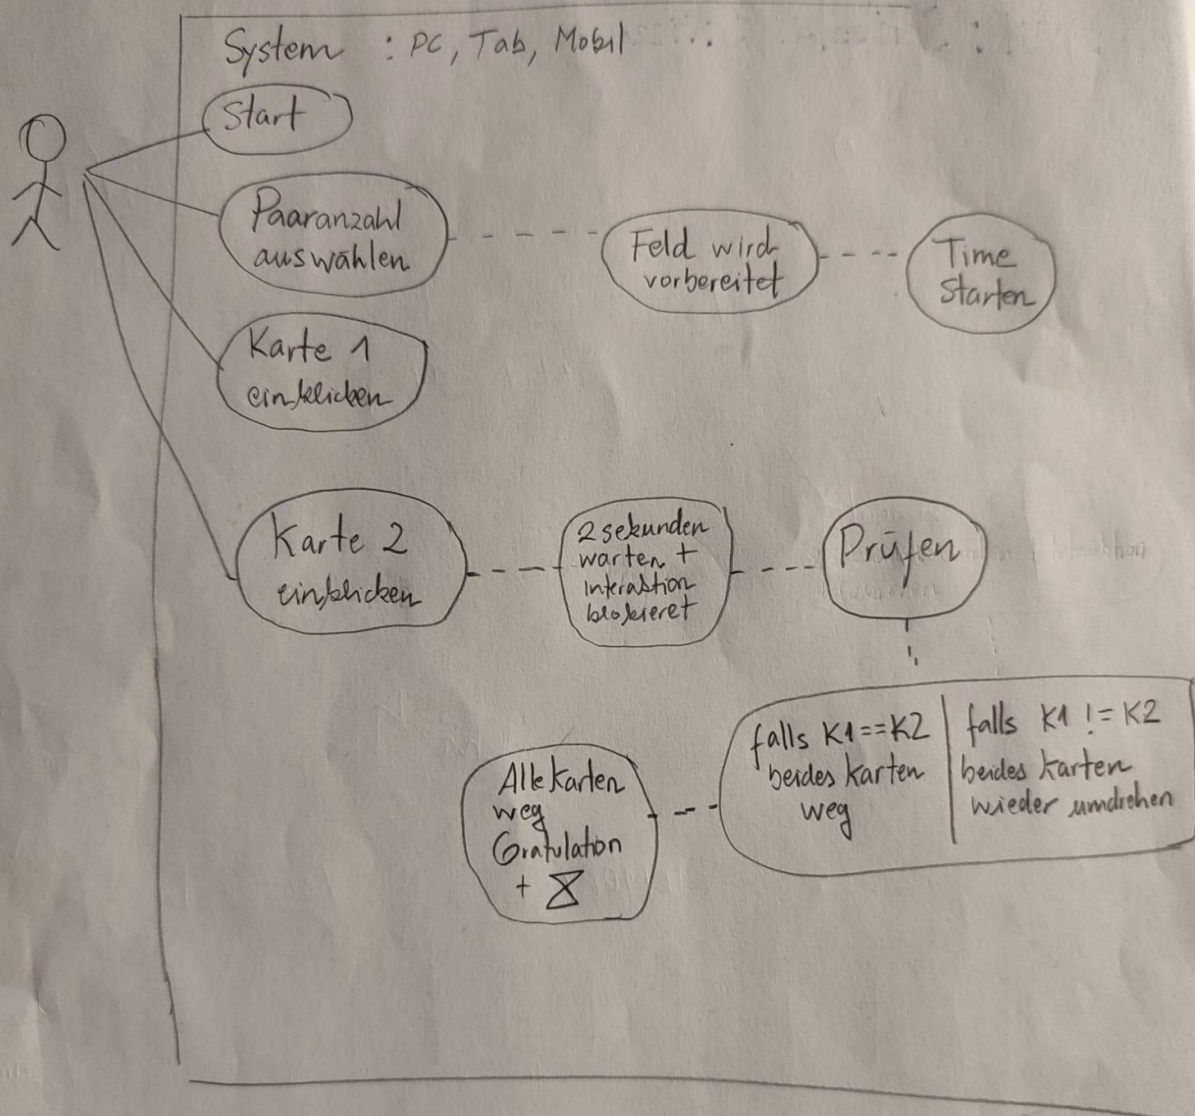 System : PC, Tab, Mobil
Start
Paaranzahl
auswählen
Feld wird
vorbereitet
Time
Starten
Karte 1
einklicken
Karte 2
einklicken
2 sekunden
warten +
Interaktion
blokieret
Prüfen
falls K1==K2
beides Karten
weg
falls K1 != K2
beides Karten
wieder umdrehen
Alle Karten
weg
Gratulation
+